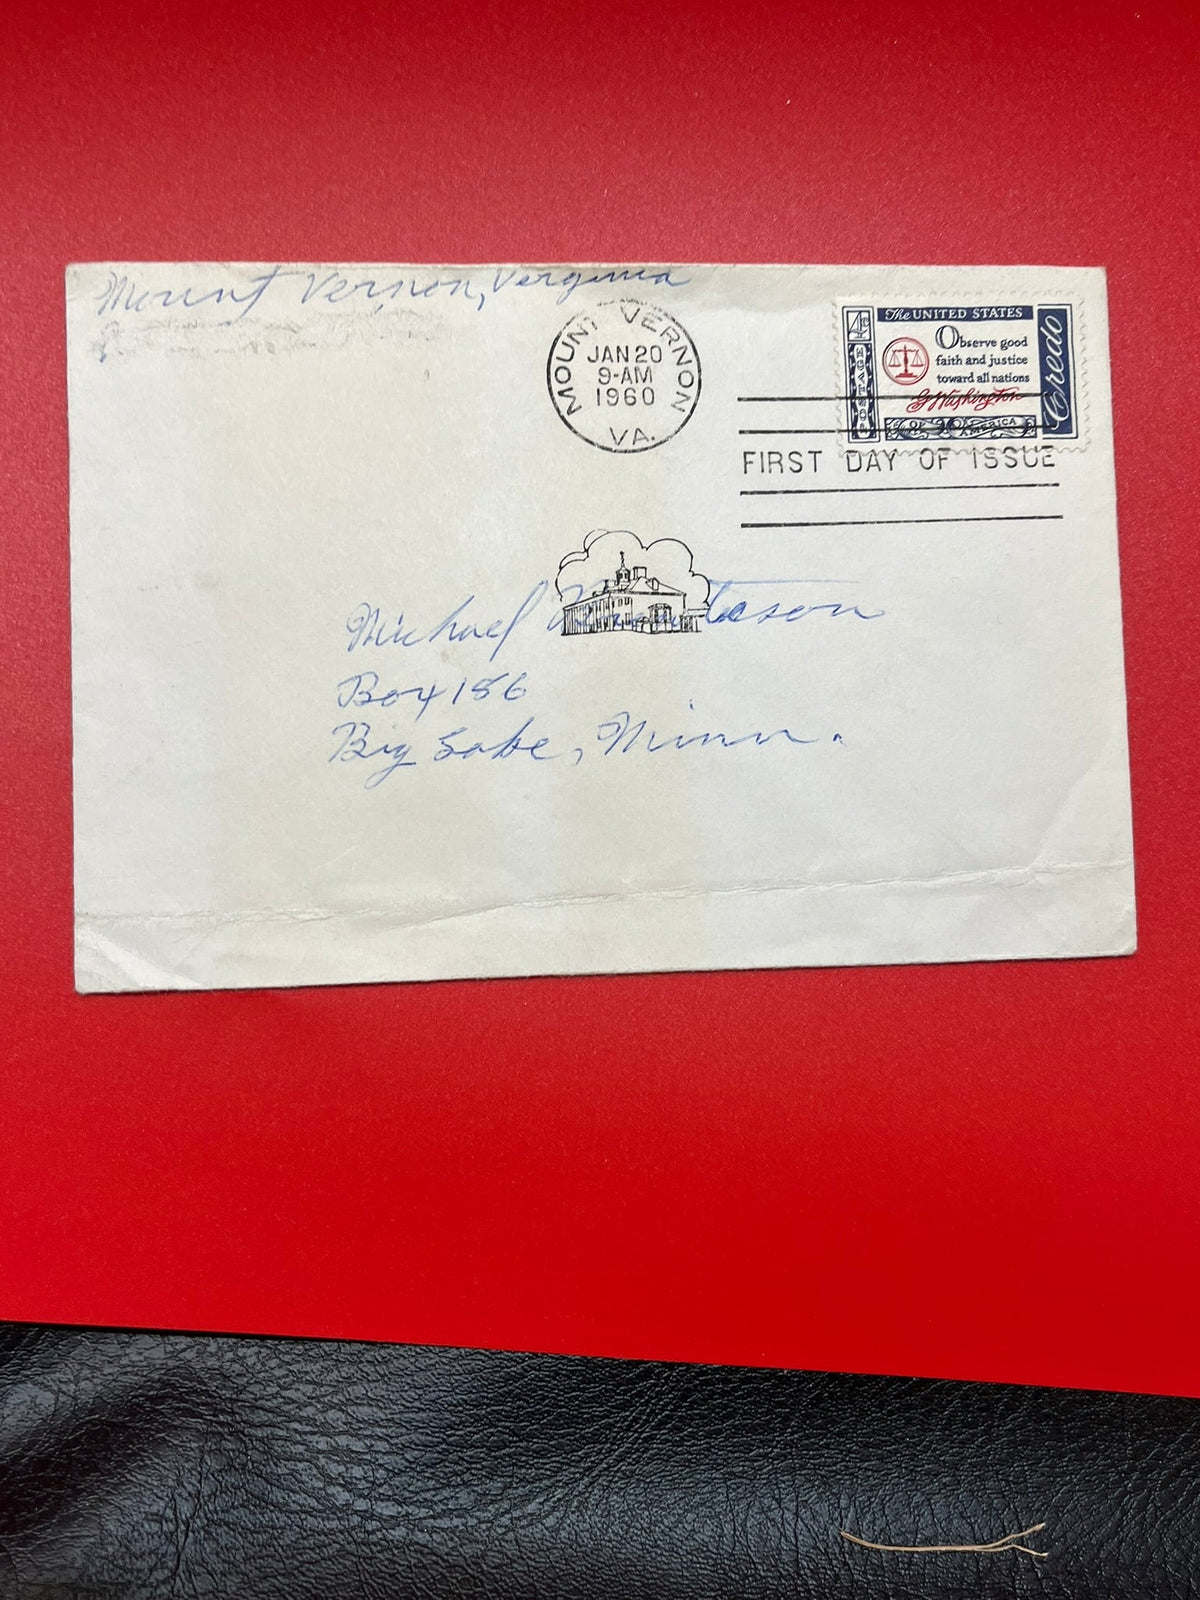 Mount Vernon, Verginia
MOUNT VERNON
JAN 20
9-AM
1960
VA.
4c
The UNITED STATES
POSTAGE
Observe good
faith and justice
toward all nations
G Washington
OF AMERICA
Credo
FIRST DAY OF ISSUE
Michael
Box 186
Big Lake, Minn.